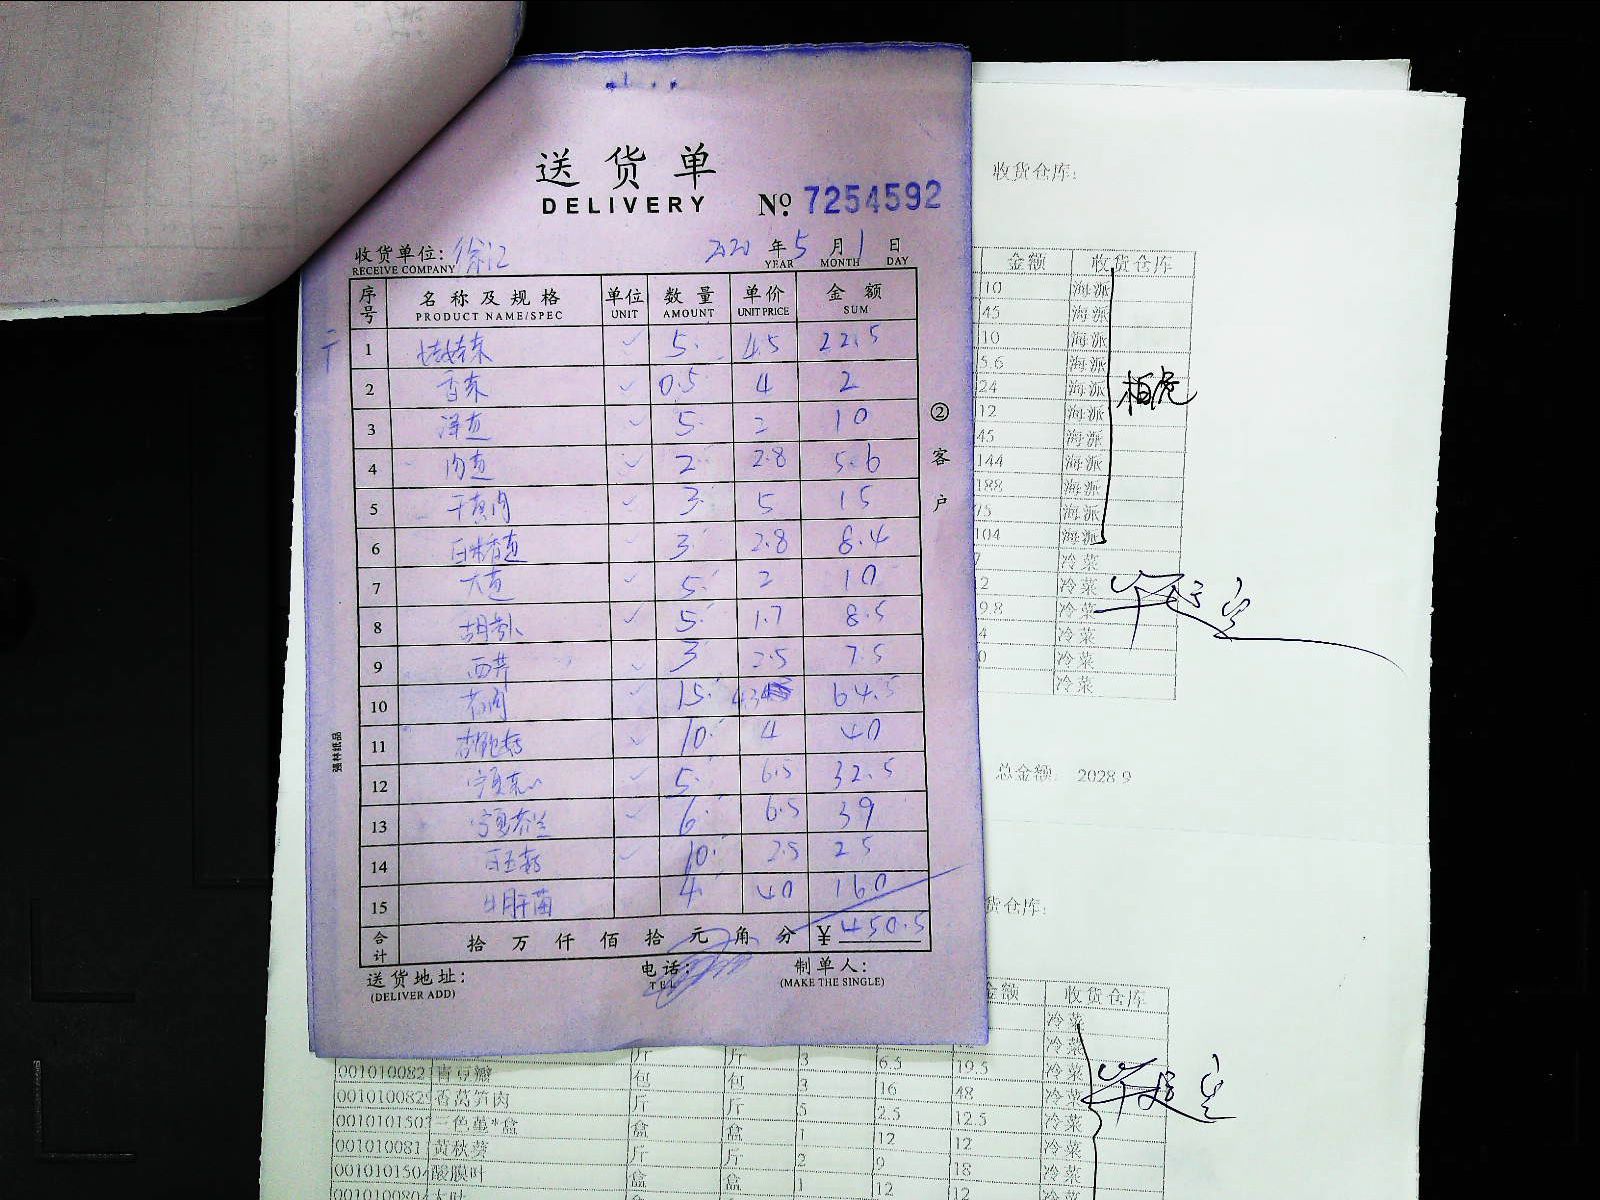 送货单
DELIVERY
№ 7254592
收货单位: 徐汇
RECEIVE COMPANY
2020 年 5 月 1 日
YEAR MONTH DAY
序号 名称及规格 单位 数量 单价 金额
PRODUCT NAME/SPEC UNIT AMOUNT UNIT PRICE SUM
1 5 4.5 22.5
2 香菜 0.5 4 2
3 洋芝 5 2 10
4 2 2.8 5.6
5 3 5 15
6 3 2.8 8.4
7 5 2 10
8 5 1.7 8.5
9 西芹 3 2.5 7.5
10 15 4.3 64.5
11 10 4 40
12 宁夏菜心 5 6.5 32.5
13 宁夏芥兰 6 6.5 39
14 10 2.5 25
15 牛肝菌 4 40 160
合计 拾 万 仟 佰 拾 元 角 分 ¥ 450.5
送货地址:
(DELIVER ADD)
电话:
TEL
制单人:
(MAKE THE SINGLE)
② 客户
强林纸品
收货仓库:
金额 收货仓库
10 海派
45 海派
10 海派
5.6 海派
24 海派
12 海派
45 海派
144 海派
188 海派
75 海派
104 海派
7 冷菜
2 冷菜
9.8 冷菜
4 冷菜
0 冷菜
冷菜
总金额: 2028.9
货仓库:
金额 收货仓库
冷菜
冷菜
斤 斤 3 6.5 19.5 冷菜
001010082 青豆瓣 包 包 3 16 48 冷菜
001010082 香莴笋肉 斤 斤 5 2.5 12.5 冷菜
001010150 三色堇*盒 盒 盒 1 12 12 冷菜
001010081 黄秋葵 斤 斤 2 9 18 冷菜
001010150 酸膜叶 盒 盒 1 12 12 冷菜